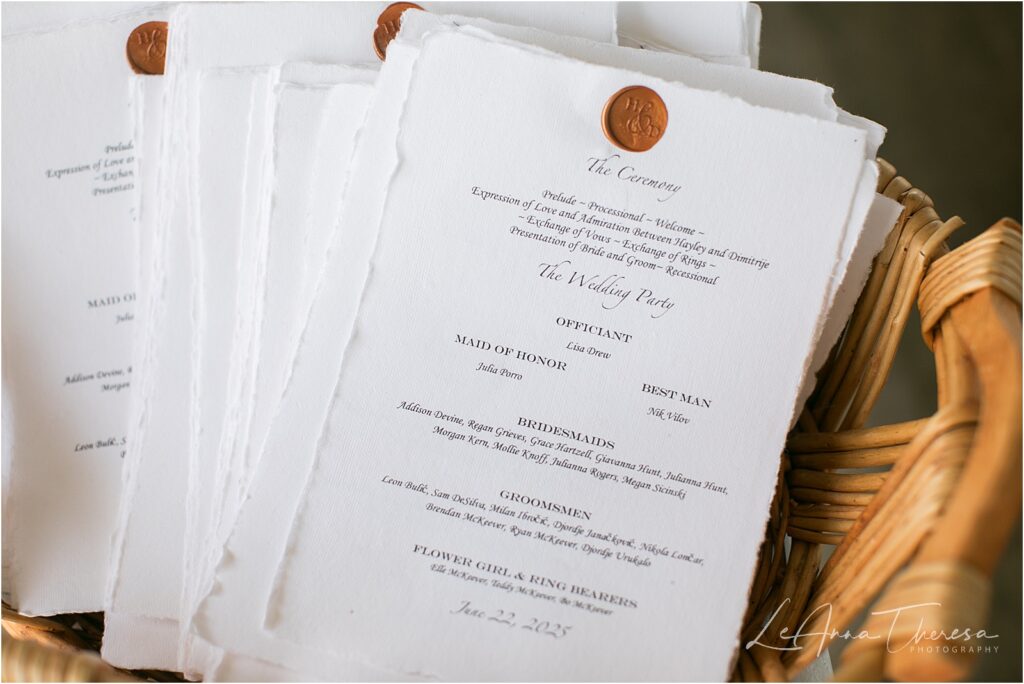 H & D
The Ceremony
Prelude ~ Processional ~ Welcome ~
Expression of Love and Admiration Between Hayley and Dimitrije
~ Exchange of Vows ~ Exchange of Rings ~
Presentation of Bride and Groom~ Recessional
The Wedding Party
OFFICIANT
Lisa Drew
MAID OF HONOR
Julia Porro
BEST MAN
Nik Vilov
BRIDESMAIDS
Addison Devine, Regan Grieves, Grace Hartzell, Giavanna Hunt, Julianna Hunt,
Morgan Kern, Mollie Knoff, Julianna Rogers, Megan Sicinski
GROOMSMEN
Leon Bulić, Sam DeSilva, Milan Ibročić, Djordje Janačković, Nikola Lončar,
Brendan McKeever, Ryan McKeever, Djordje Urukalo
FLOWER GIRL & RING BEARERS
Elle McKeever, Teddy McKeever, Bo McKeever
June 22, 2025
Prelud
Expression of Love an
~ Exchan
Presentation
MAID O
Julia
Addison Devine,
Morgan
Leon Bulić, S
LeAnna Theresa
PHOTOGRAPHY